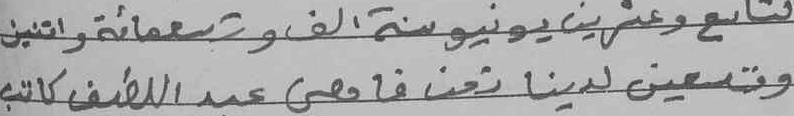 تاسع وعشرين يونيو سنة الف وتسعمائة واثنين
وتسعين لدينا نحن عبد اللطيف كاتب